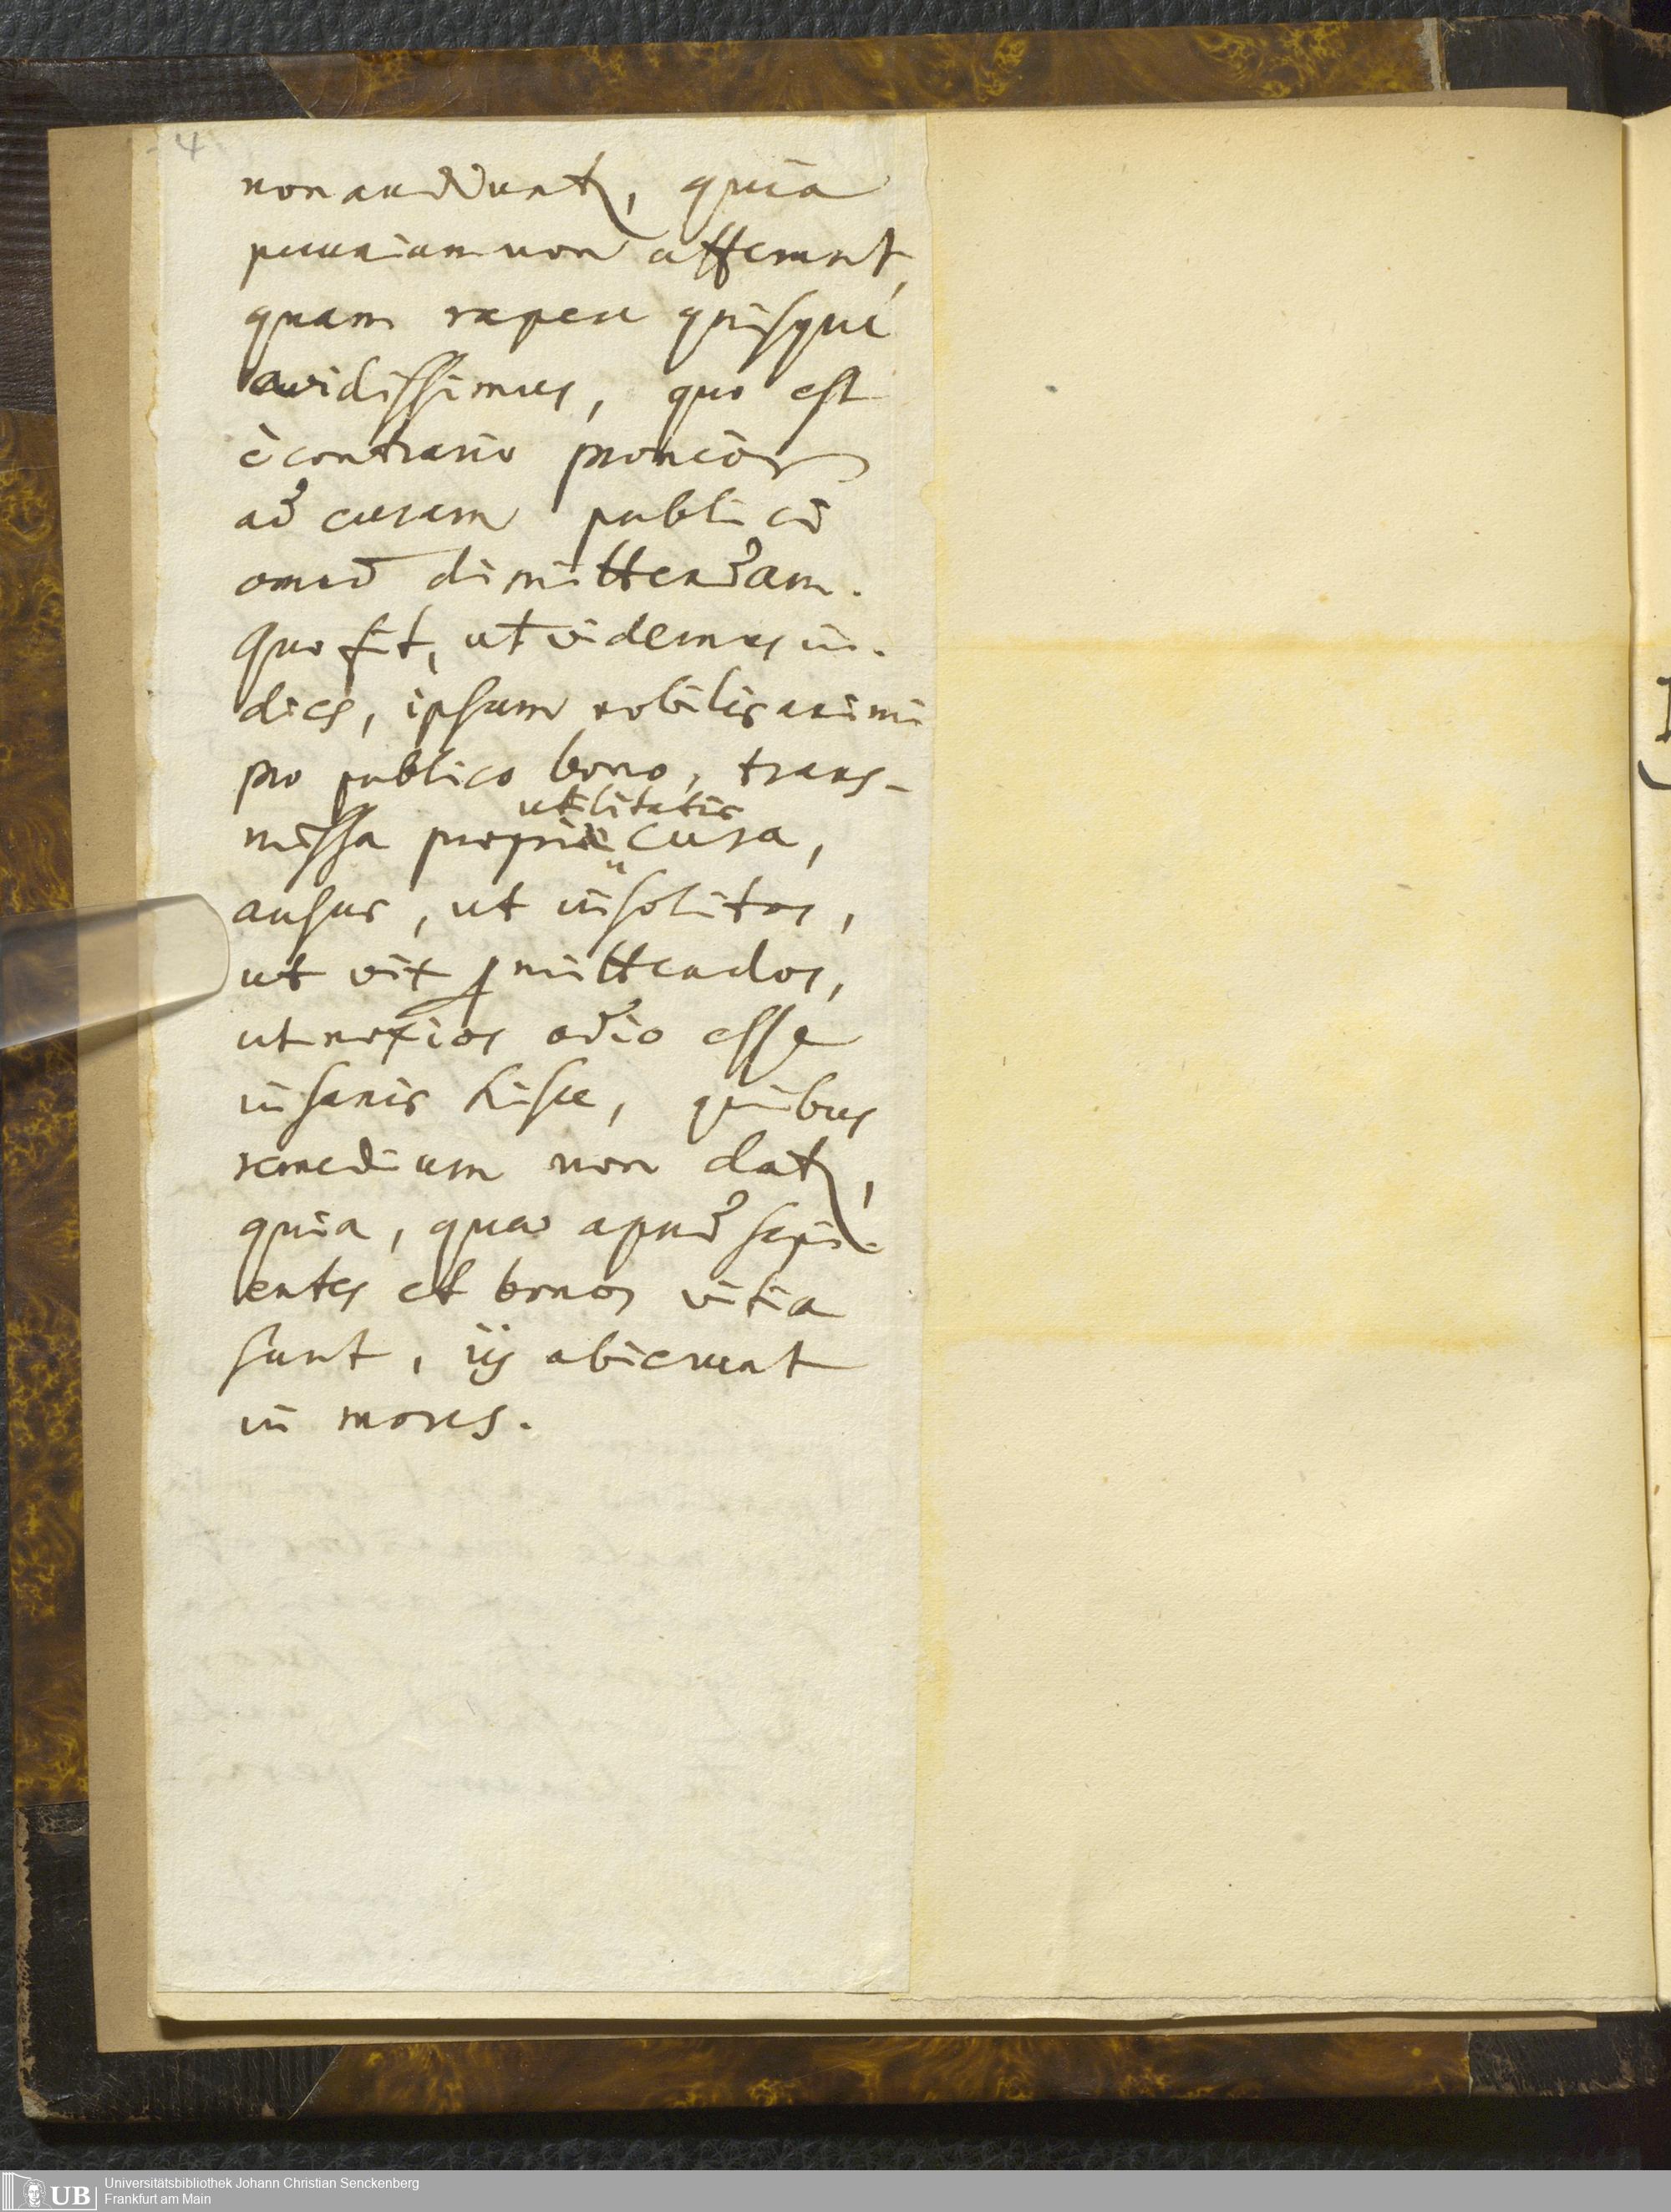 4
non audiunt, quia
pecuniam non afferunt,
quam rapere quisque
avidissimus, quo est
è contrario pronior
ad curam publici
omnem dimittendam.
Quo fit, ut videmus in-
dies, ipsum nobilis animi
pro publico bono, trans-
utilitatis
missa propriae cura,
ausus, ut insolitos,
ut vix mittendos,
ut noxios odio esse
insanis hisce, quibus
remedium non datur,
quia, quae apud sapi-
entes et bonos vitia
sunt, iis abierunt
in mores.
UB
Universitätsbibliothek Johann Christian Senckenberg
Frankfurt am Main